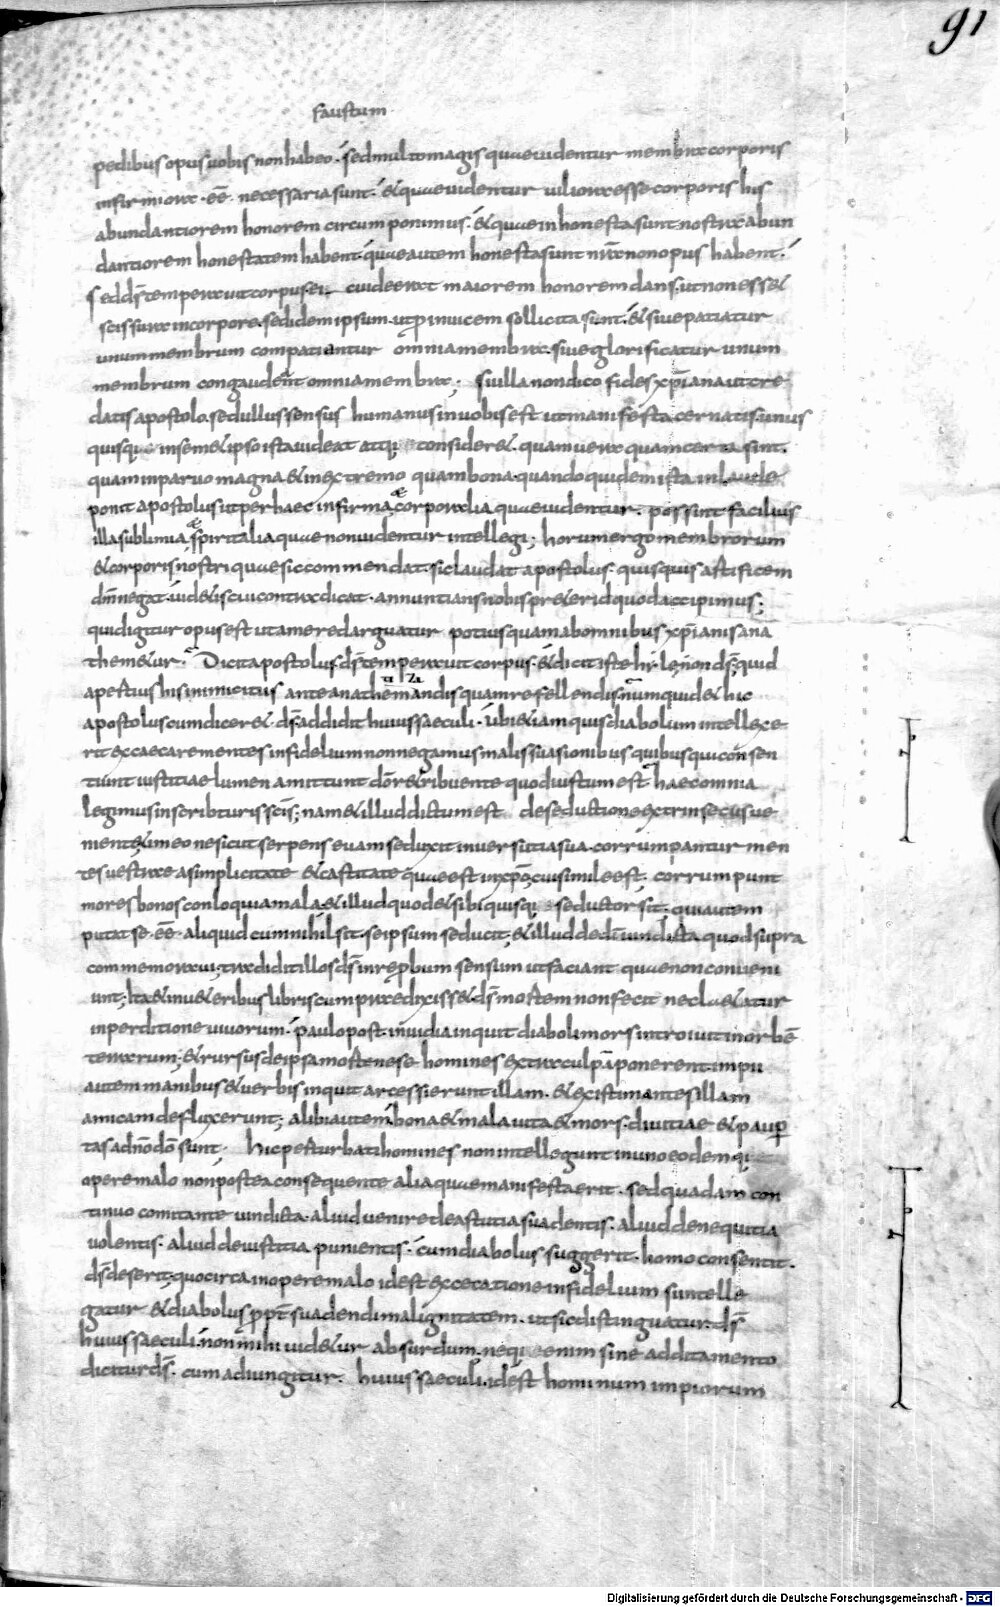 91
faustum
pedibus opus uobis non habeo · sed multo magis quae uidentur membra corporis
infirmiora · eē · necessaria sunt · et quae uidentur uiliora esse corporis his
abundantiorem honorem circumponimus · et quae inhonesta sunt nostra abun
dantiorem honestatem habent · quae autem honesta sunt nr̄a non opus habent ·
sed dſ̄ temperauit corpus ei cui deerat maiorem honorem dans · ut non esset
scissura in corpore · sed idem ipsum · ut pro inuicem sollicita sint · et siue patiatur
unum membrum compatiantur omnia membra · siue glorificatur unum
membrum congaudent omnia membra ; si ulla non dico fides xp̄iana ut cre
datis apostolo · sed ullus sensus humanus in uobis est ut manifesta cernatis · unus
quisq; in semet ipso ista uideat atq; consideret · quam uera quam certa sint ·
quam in paruo magna et in extremo quam bona · quando quidem ista in laude
ponit apostolus ut per haec infirma corporalia quae uidentur · possint facilius
illa sublimia spiritalia quae non uidentur intellegi ; horum ergo membrorum
et corporis nostri quae sic commendat · sic laudat apostolus · quisquis artificem
dm̄ negat · uidetis cui contradicat · annuntians nobis preter id quod accipimus ;
quid igitur opus est ut a me redarguatur potius quam ab omnibus xp̄ianis ana
themetur · Dicit apostolus dſ̄ temperauit corpus · et dicit iste hyle non dſ̄ · quid
apertius his inimicitiis anathemandis quam refellendis · numquid et hic
apostolus cum diceret · dſ̄ addidit huius saeculi · Ubi etiam quis diabolum intellexe
rit excaecare mentes infidelium non negamus malis suasionibus quibus qui consen
tiunt iustitiae lumen amittunt dō retribuente quod iustum est haec omnia
legimus in scribturis scīs ; nam et illud dictum est de seductione extrinsecus ue
niente timeo ne sicut serpens euam seduxit in uersutia sua · corrumpantur men
tes uestrae a simplicitate et castitate quae est in xp̄o ; cui simile est · corrumpunt
mores bonos conloquia mala · et illud quod et sibi quisq; seductor sit · qui autem
putat se · eē · aliquid cum nihil sit · se ipsum seducit ; et illud de dī uindicta quod supra
commemoraui ; tradidit illos dſ̄ in repbum sensum ut faciant quae non conueni
unt ; Ita et in ueteribus libris cum praedixisset · dſ̄ mortem non fecit nec laetatur
in perditione uiuorum · paulo post inuidia inquit diaboli mors introiuit in orbē
terrarum ; et rursus de ipsa morte ne se homines extra culpā ponerent impii
autem manibus et uerbis inquit arcessierunt illam · et existimantes illam
amicam defluxerunt ; alibi autem bona et mala uita et mors · diuitiae et pauper
tas a dn̄o dō sunt ; hic perturbati homines non intellegunt in uno eodemq;
opere malo non postea consequente alia quae manifesta erit · sed quadam con
tinuo comitante uindicta · aliud uenire de astutia suadentis · aliud de nequitia
uolentis · aliud de iustitia punientis · cum diabolus suggerit · homo consentit ·
dſ̄ deserit ; quocirca in opere malo id est excecatione infidelium si intelle
gatur et diabolus ppt̄ suadendi malignitatem · ut sic distinguatur · dſ̄
huius saeculi · non mihi uidetur absurdum · neq; enim sine additamento
dicitur dſ̄ · cum adiungitur · huius saeculi · id est hominum impiorum
Digitalisierung gefördert durch die Deutsche Forschungsgemeinschaft - DFG